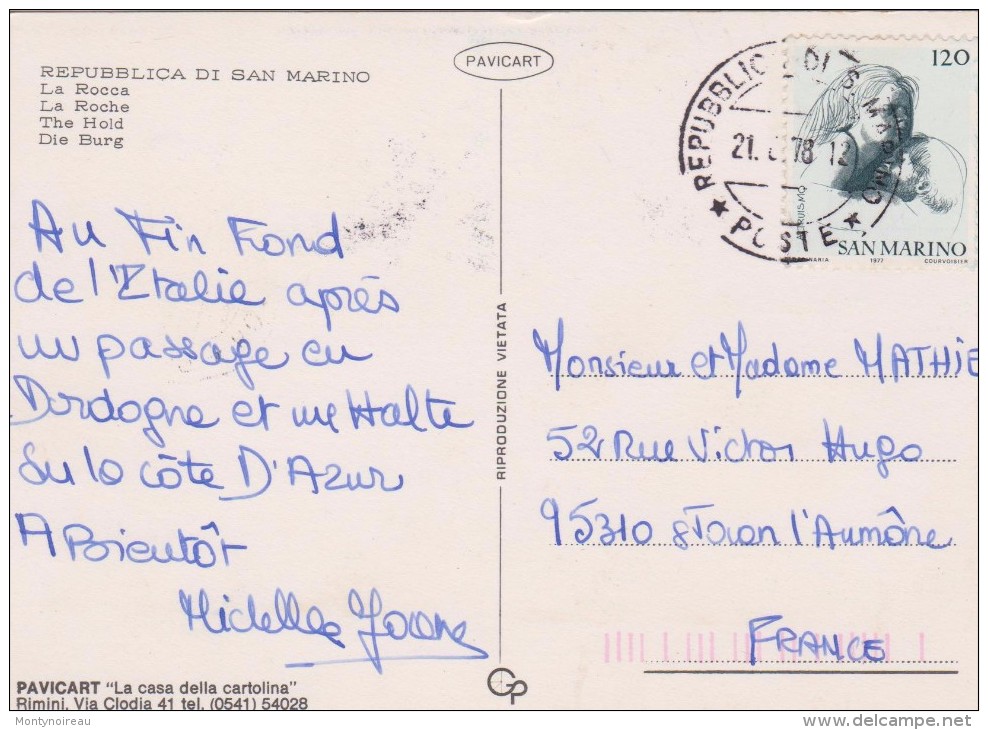 REPUBBLICA DI SAN MARINO
La Rocca
La Roche
The Hold
Die Burg
PAVICART
REPUBBLICA DI S. MARINO
21. 78 12
★ POSTE ★
120
SAN MARINO
1977 COURVOISIER
Au Fin Fond
de l'Italie après
un passage en
Dordogne et une Halte
Su la côte D'Azur
A Bientôt
Michelle
RIPRODUZIONE VIETATA
Monsieur et Madame MATHIE
52 Rue Victor Hugo
95310 St Ouen l'Aumône
FRANCE
PAVICART "La casa della cartolina"
Rimini. Via Clodia 41 tel. (0541) 54028
Montynoireau
www.delcampe.net